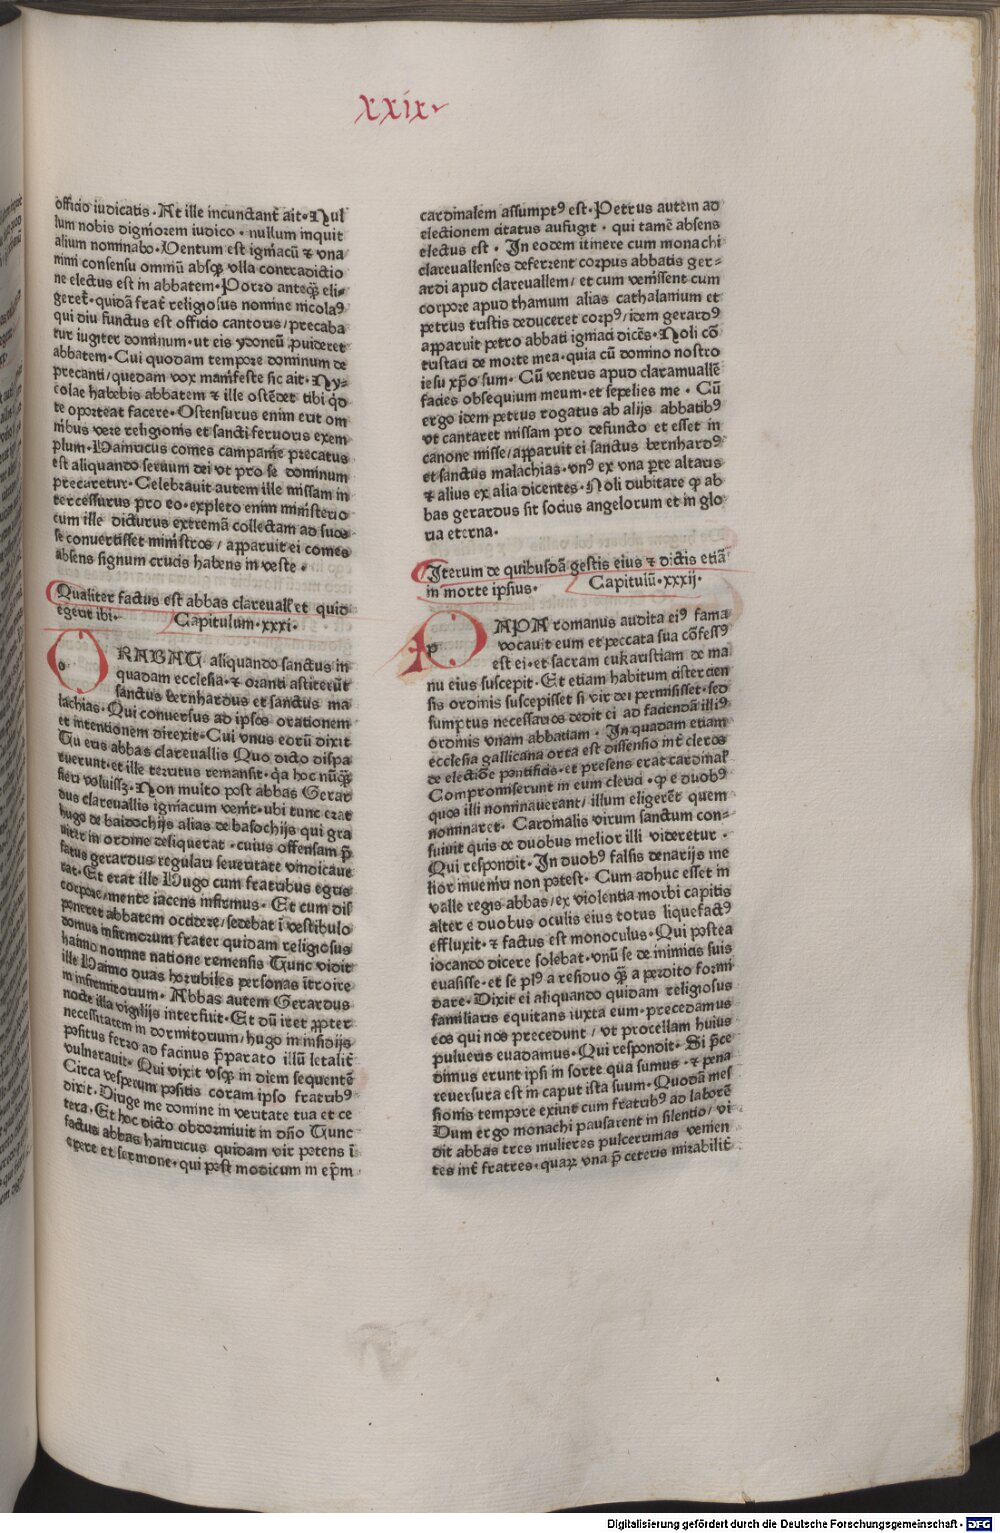 xxix
officio iudicatis · At ille incunctant̄ ait · Nul
lum nobis digniorem iudico · nullum inquit
alium nominabo · Ventum est igniacū ⁊ vna
nimi consensu omniū absqꝫ vlla contradictio
ne electus est in abbatem · Porro anteqꝫ̄ eli⸗
geret̄ · quidā frat̄ religiosus nomine nicolaꝰ
qui diu functus est officio cantoris / precaba
tur iugiter dominum · ut eis ydoneū ꝓuideret
abbatem · Cui quodam tempore dominum de
precanti / quedam vox manifeste sic ait · Ny⸗
colae habebis abbatem ⁊ ille ostēdet tibi qd̄
te oporteat facere · Ostensurus enim erit om
nibus vere religionis et sancti feruoris exem
plum · Hainricus comes campanie precatus
est aliquando seruum dei vt pro se dominum
precaretur · Celebrauit autem ille missam in
tercessurus pro eo · expleto enim ministerio
cum ille dicturus extremā collectam ad suos
se conuertisset ministros / apparuit ei comes
absens signum crucis habens in veste ·
Qualiter factus est abbas clareuall̄ et quid
egerit ibi · Capitulum · xxxi ·
o
ORABAT aliquando sanctus in
quadam ecclesia · ⁊ oranti astiterūt
sanctus bernhardus et sanctus ma
lachias · Qui conuersus ad ipsos orationem
et intentionem direxit · Cui vnus eorū dixit
Tu eris abbas clareuallis Quo dicto dispa
ruerunt · et ille territus remansit · qa hoc nūqꝫ̄
fieri voluissꝫ · Non multo post abbas Gerar
dus clareuallis igniacum venit · vbi tunc erat
hugo de baidochijs alias de basochijs qui gra
uiter in ordine deliquerat · cuius offensam p̄
fatus gerardus regulari seueritate vindicaue
rat · Et erat ille Hugo cum fratribus egris
corpore / mente iacens infirmus · Et cum dis
poneret abbatem occidere / sedebat ī vestibulo
domus infirmorum frater quidam religiosus
haimo nomine natione remensis Tunc vidit
ille Haimo duas horribiles personas ītroire
in infirmitorium · Abbas autem Gerardus
nocte illa vigilijs interfuit · Et dū iret ꝓpter
necessitatem in dormitorium / hugo in insidijs
positus ferro ad facinus p̄parato illū letalit̄
vulnerauit · Qui vixit vsqꝫ in diem sequentē
Circa vesperum positis coram ipso fratribꝰ
dixit · Dirige me domine in veritate tua et ce
tera · Et hoc dicto obdormiuit in dn̄o Tunc
factus abbas hainricus quidam vir potens ī
opere et sermone · qui post modicum in ep̄m
cardinalem assumptꝰ est · Petrus autem ad
electionem citatus aufugit · qui tamē absens
electus est · In eodem itinere cum monachi
clareuallenses deferrent corpus abbatis ger⸗
ardi apud clareuallem / et cum venissent cum
corpore apud thamum alias cathalanium et
petrus tristis deduceret corpꝰ / idem gerardꝰ
apparuit petro abbati igniaci dicēs · Noli cō
tristari de morte mea · quia cū domino nostro
iesu xp̄o sum · Cū veneris apud claramuallē
facies obsequium meum · et sepelies me · Cū
ergo idem petrus rogatus ab alijs abbatibꝰ
vt cantaret missam pro defuncto et esset in
canone misse / apparuit ei sanctus bernhardꝰ
et sanctus malachias · vnꝰ ex vna ꝑte altaris
⁊ alius ex alia dicentes · Noli dubitare ꝙ ab
bas gerardus sit socius angelorum et in glo
ria eterna ·
Iterum de quibusdā gestis eius ⁊ dictis etiā
in morte ipsius · Capitulū · xxxij ·
p
PAPA romanus audita eiꝰ fama
vocauit eum et peccata sua cōfessꝰ
est ei · et sacram eukaristiam de ma
nu eius suscepit · Et etiam habitum cistercien
sis ordinis suscepisset si vir dei permisisset · sed
sumptus necessarios dedit ei ad faciendā illiꝰ
ordinis vnam abbatiam · In quadam etiam
ecclesia gallicana orta est dissensio int̄ cleros
de electiōe pontificis · et presens erat cardinal̄
Compromiserunt in eum clerici · ꝙ e duobꝰ
quos illi nominauerant / illum eligerēt quem
nominaret · Cardinalis virum sanctum con⸗
suluit quis de duobus melior illi videretur ·
Qui respondit · In duobꝰ falsis denarijs me
lior inueniri non potest · Cum adhuc esset in
valle regis abbas / ex violentia morbi capitis
alter e duobus oculis eius totus liquefactꝰ
effluxit · ⁊ factus est monoculus · Qui postea
iocando dicere solebat · vnū se de inimicis suis
euasisse · et se plꝰ a residuo qꝫ̄ a perdito formi
dare · Dixit ei aliquando quidam religiosus
familiaris equitans iuxta eum · precedamus
eos qui nos precedunt / vt procellam huius
pulueris euadamus · Qui respondit · Si p̄ce
dimus erunt ipsi in sorte qua sumus · ⁊ pena
reuersura est in caput ista suum · Quodā mes
sionis tempore exiuit cum fratribꝰ ad laborē
Dum ergo monachi pausarent in silentio / vi
dit abbas tres mulieres pulcerrimas venien
tes int̄ fratres · quaꝝ vna p̄ ceteris mirabilit̄
Digitalisierung gefördert durch die Deutsche Forschungsgemeinschaft - DFG